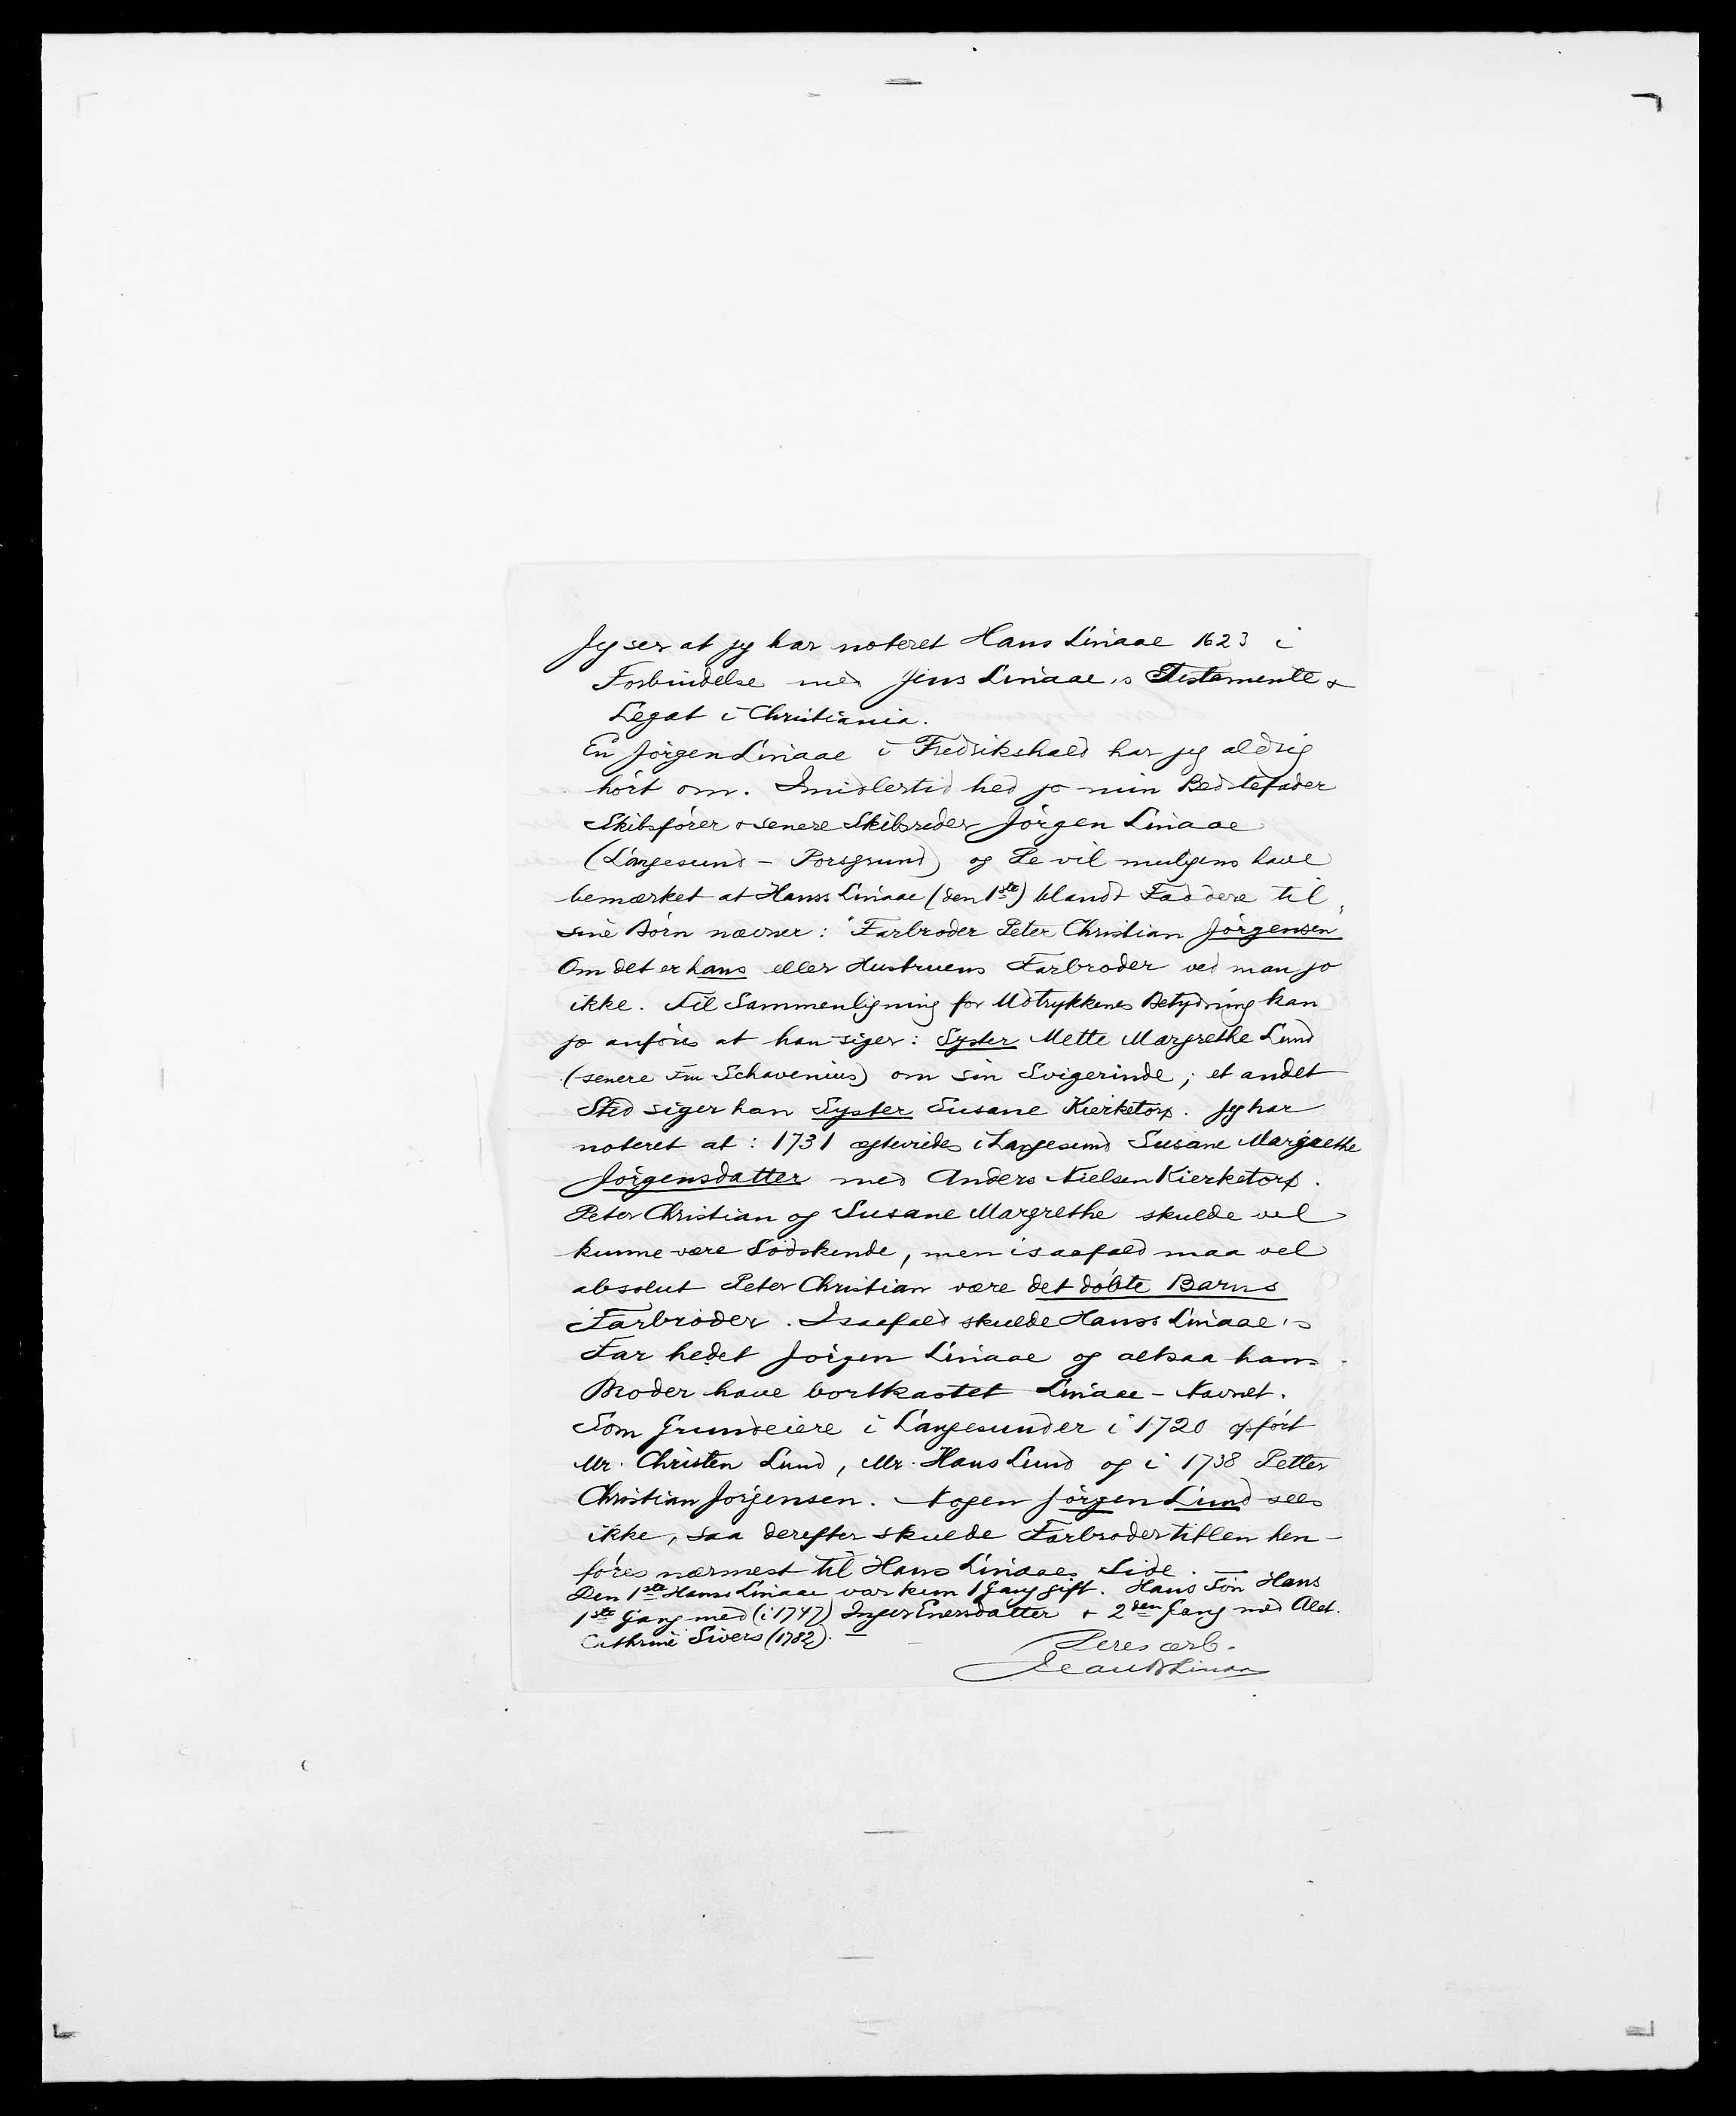 Jeg ser at jeg har noteret Hans Linaae 1623 i
Forbindelse med Jens Linaae's Testamente &
Legat i Christiania.
En Jörgen Linaae i Fredrikshald har jeg aldrig
hört om. Imidlertid hed jo min Bedstefader
Skibsförer & senere Skibsreder Jörgen Linaae
(Langesund - Porsgrund) og De vil muligens have
bemærket at Hanss Linaae (den 1ste) blandt Faddere til
sine Börn nævner: "Farbroder Peter Christian Jörgensen"
Om det er hans eller Hustruens Farbroder ved man jo
ikke. Til Sammenligning for Udtrykkenes Betydning kan
jo anföres at han siger: Syster Mette Margrethe Lund
(senere Fru Schavenius) om sin Svigerinde; et andet
Sted siger han Syster Susane Kierketorp. Jeg har
noteret at: 1731 ægtevides i Langesund Susane Margrethe
Jörgensdatter med Anders Nielsen Kierketorp.
Peter Christian og Susane Margrethe skulde vel
kunne være Södskende, men isaafald maa vel
absolut Peter Christian være det döbte Barns
Farbroder. Isaafald skulde Hanss Linaae's
Far hedet Jörgen Linaae og altsaa hans
Broder have bortkastet Linaae-Navnet.
Som Grundeiere i Langesund er i 1720 opfört
Mr. Christen Lund, Mr. Hans Lund og i 1738 Petter
Christian Jörgensen. Nogen Jörgen Lund sees
ikke, saa derefter skulde Farbrodertitlen hen-
föres nærmest til Hans Linaaes Side. —
Den 1ste Hans Linaae var kun 1 Gang gift. Hans Sön Hans
1ste Gang med (i 1747) Inger Enersdatter & 2den Gang med Alet.
Cathrine Sivers (1782). —
Deres ærb.
Linaae